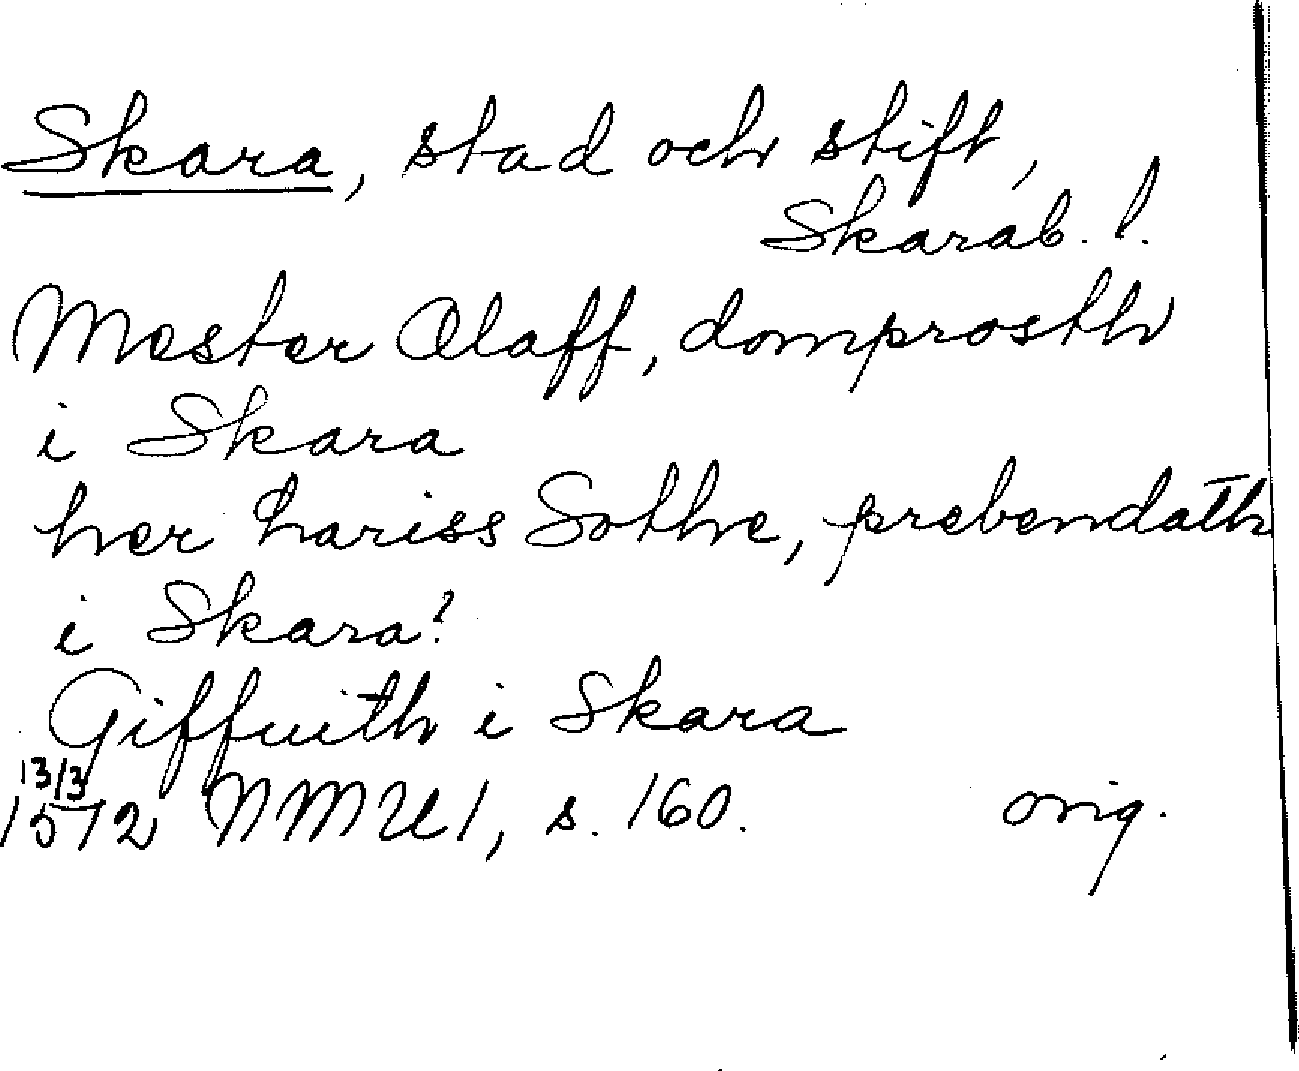 Skara, stad och stift,
Skarab. l.
Mester Olaff, domprosth
i Skara
her hariss Sothe, prebendath
i Skara!
Giffuith i Skara
13/3
1512 NMU 1, s. 160. orig.